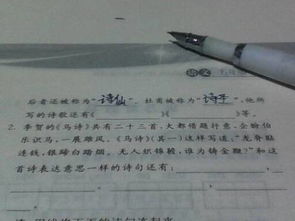 语文
后者还被称为“诗仙”。杜甫被称为“诗圣”，他所
写的诗歌还有（ ）（ ）等。
2. 李贺的《马诗》共有二十三首，大都借题抒意，企盼伯
乐识马，一展雄风。《马诗》（其一）这样写道：“龙脊贴
连钱，银蹄白踏烟。无人织锦韂，谁为铸金鞭？”和这
首诗表达意思一样的诗句还有：